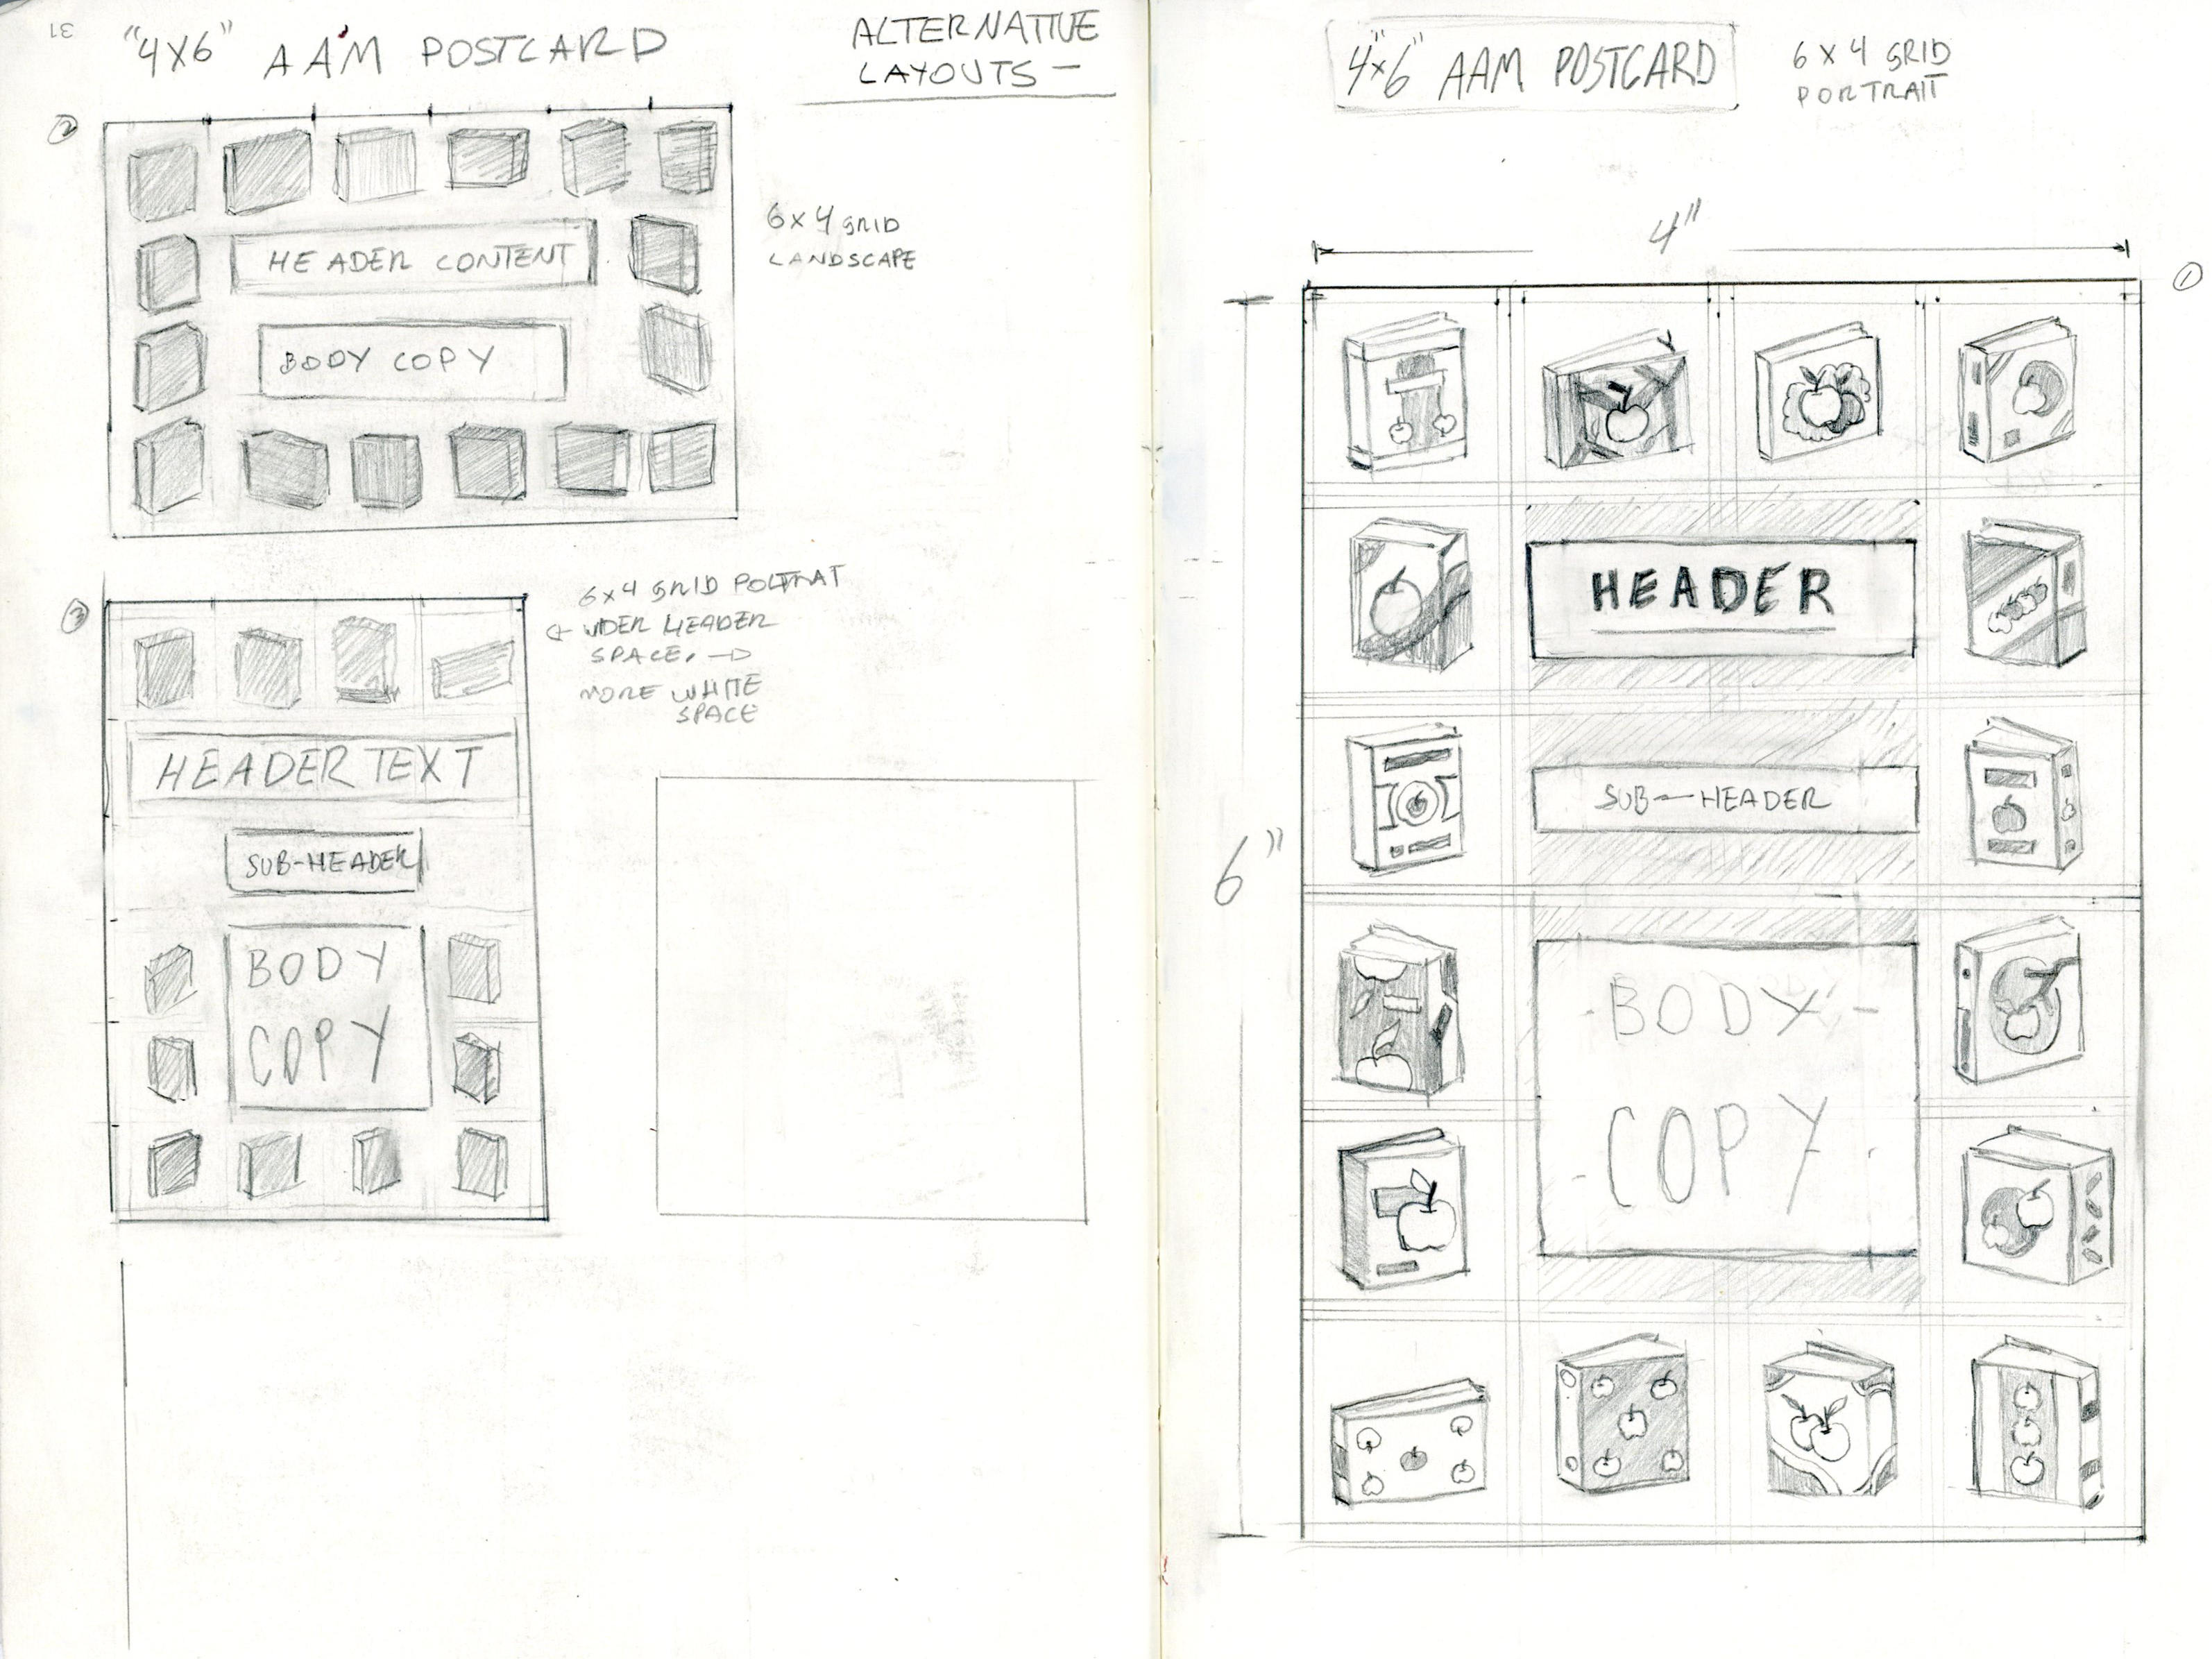 31
"4X6" AAM POSTCARD
ALTERNATIVE
LAYOUTS —
2
HEADER CONTENT
BODY COPY
6x4 GRID
LANDSCAPE
3
6x4 GRID POLTRAT
← WIDER HEADER
SPACE. →
MORE WHITE
SPACE
HEADER TEXT
SUB-HEADER
BODY
COPY
4"x6" AAM POSTCARD
6 X 4 GRID
PORTRAIT
4"
1
6"
HEADER
SUB-HEADER
- BODY -
- COPY -